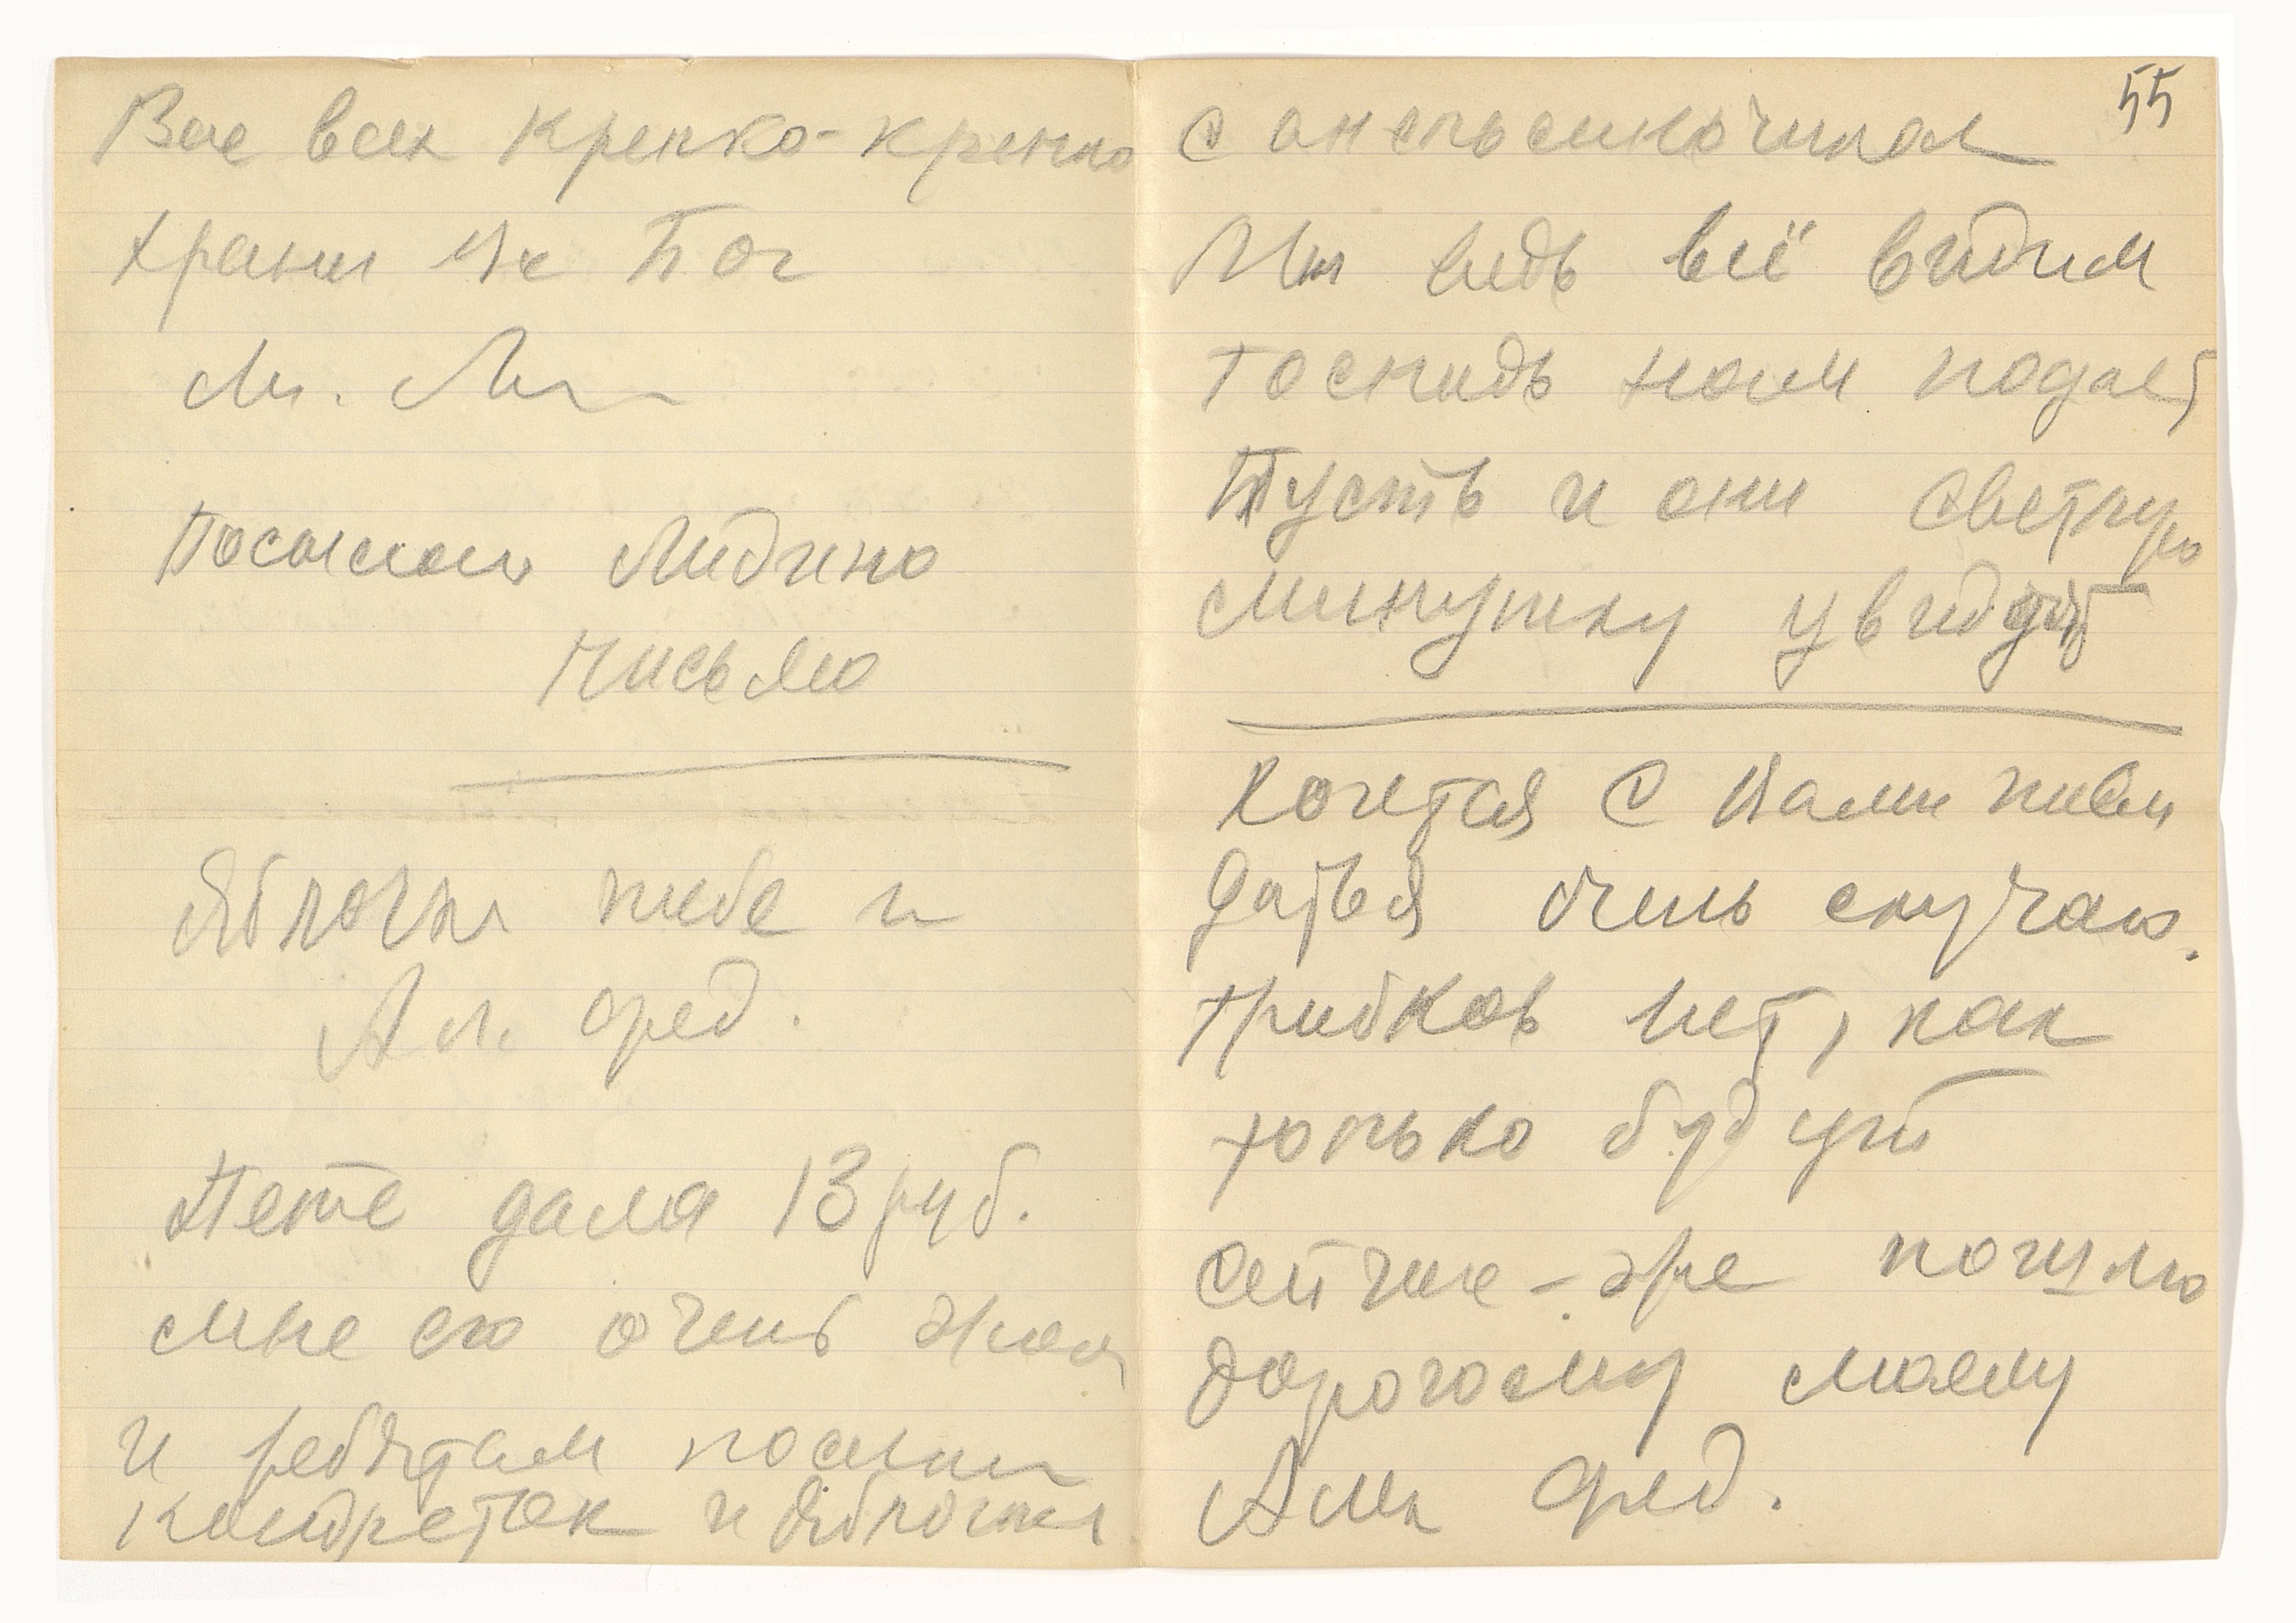 Вас всех крепко-крепко
храни Их Бог
М. М
Посылаю Лидино
письмо
Яблочки тебе и
Ал. Фед.
Пете дала 13 руб.
мне его очень жаль
и ребятам посылки
конфеток и яблочки
55
с апельсиночками
Мы ведь всё видим
Господь нам подает
Пусть и они светлую
минутку увидят
Хочется с Вами пови
даться очень скучаю.
Грибков нет, как
только будут
сейчас-же пошлю
дорогому моему
Алек Фед.